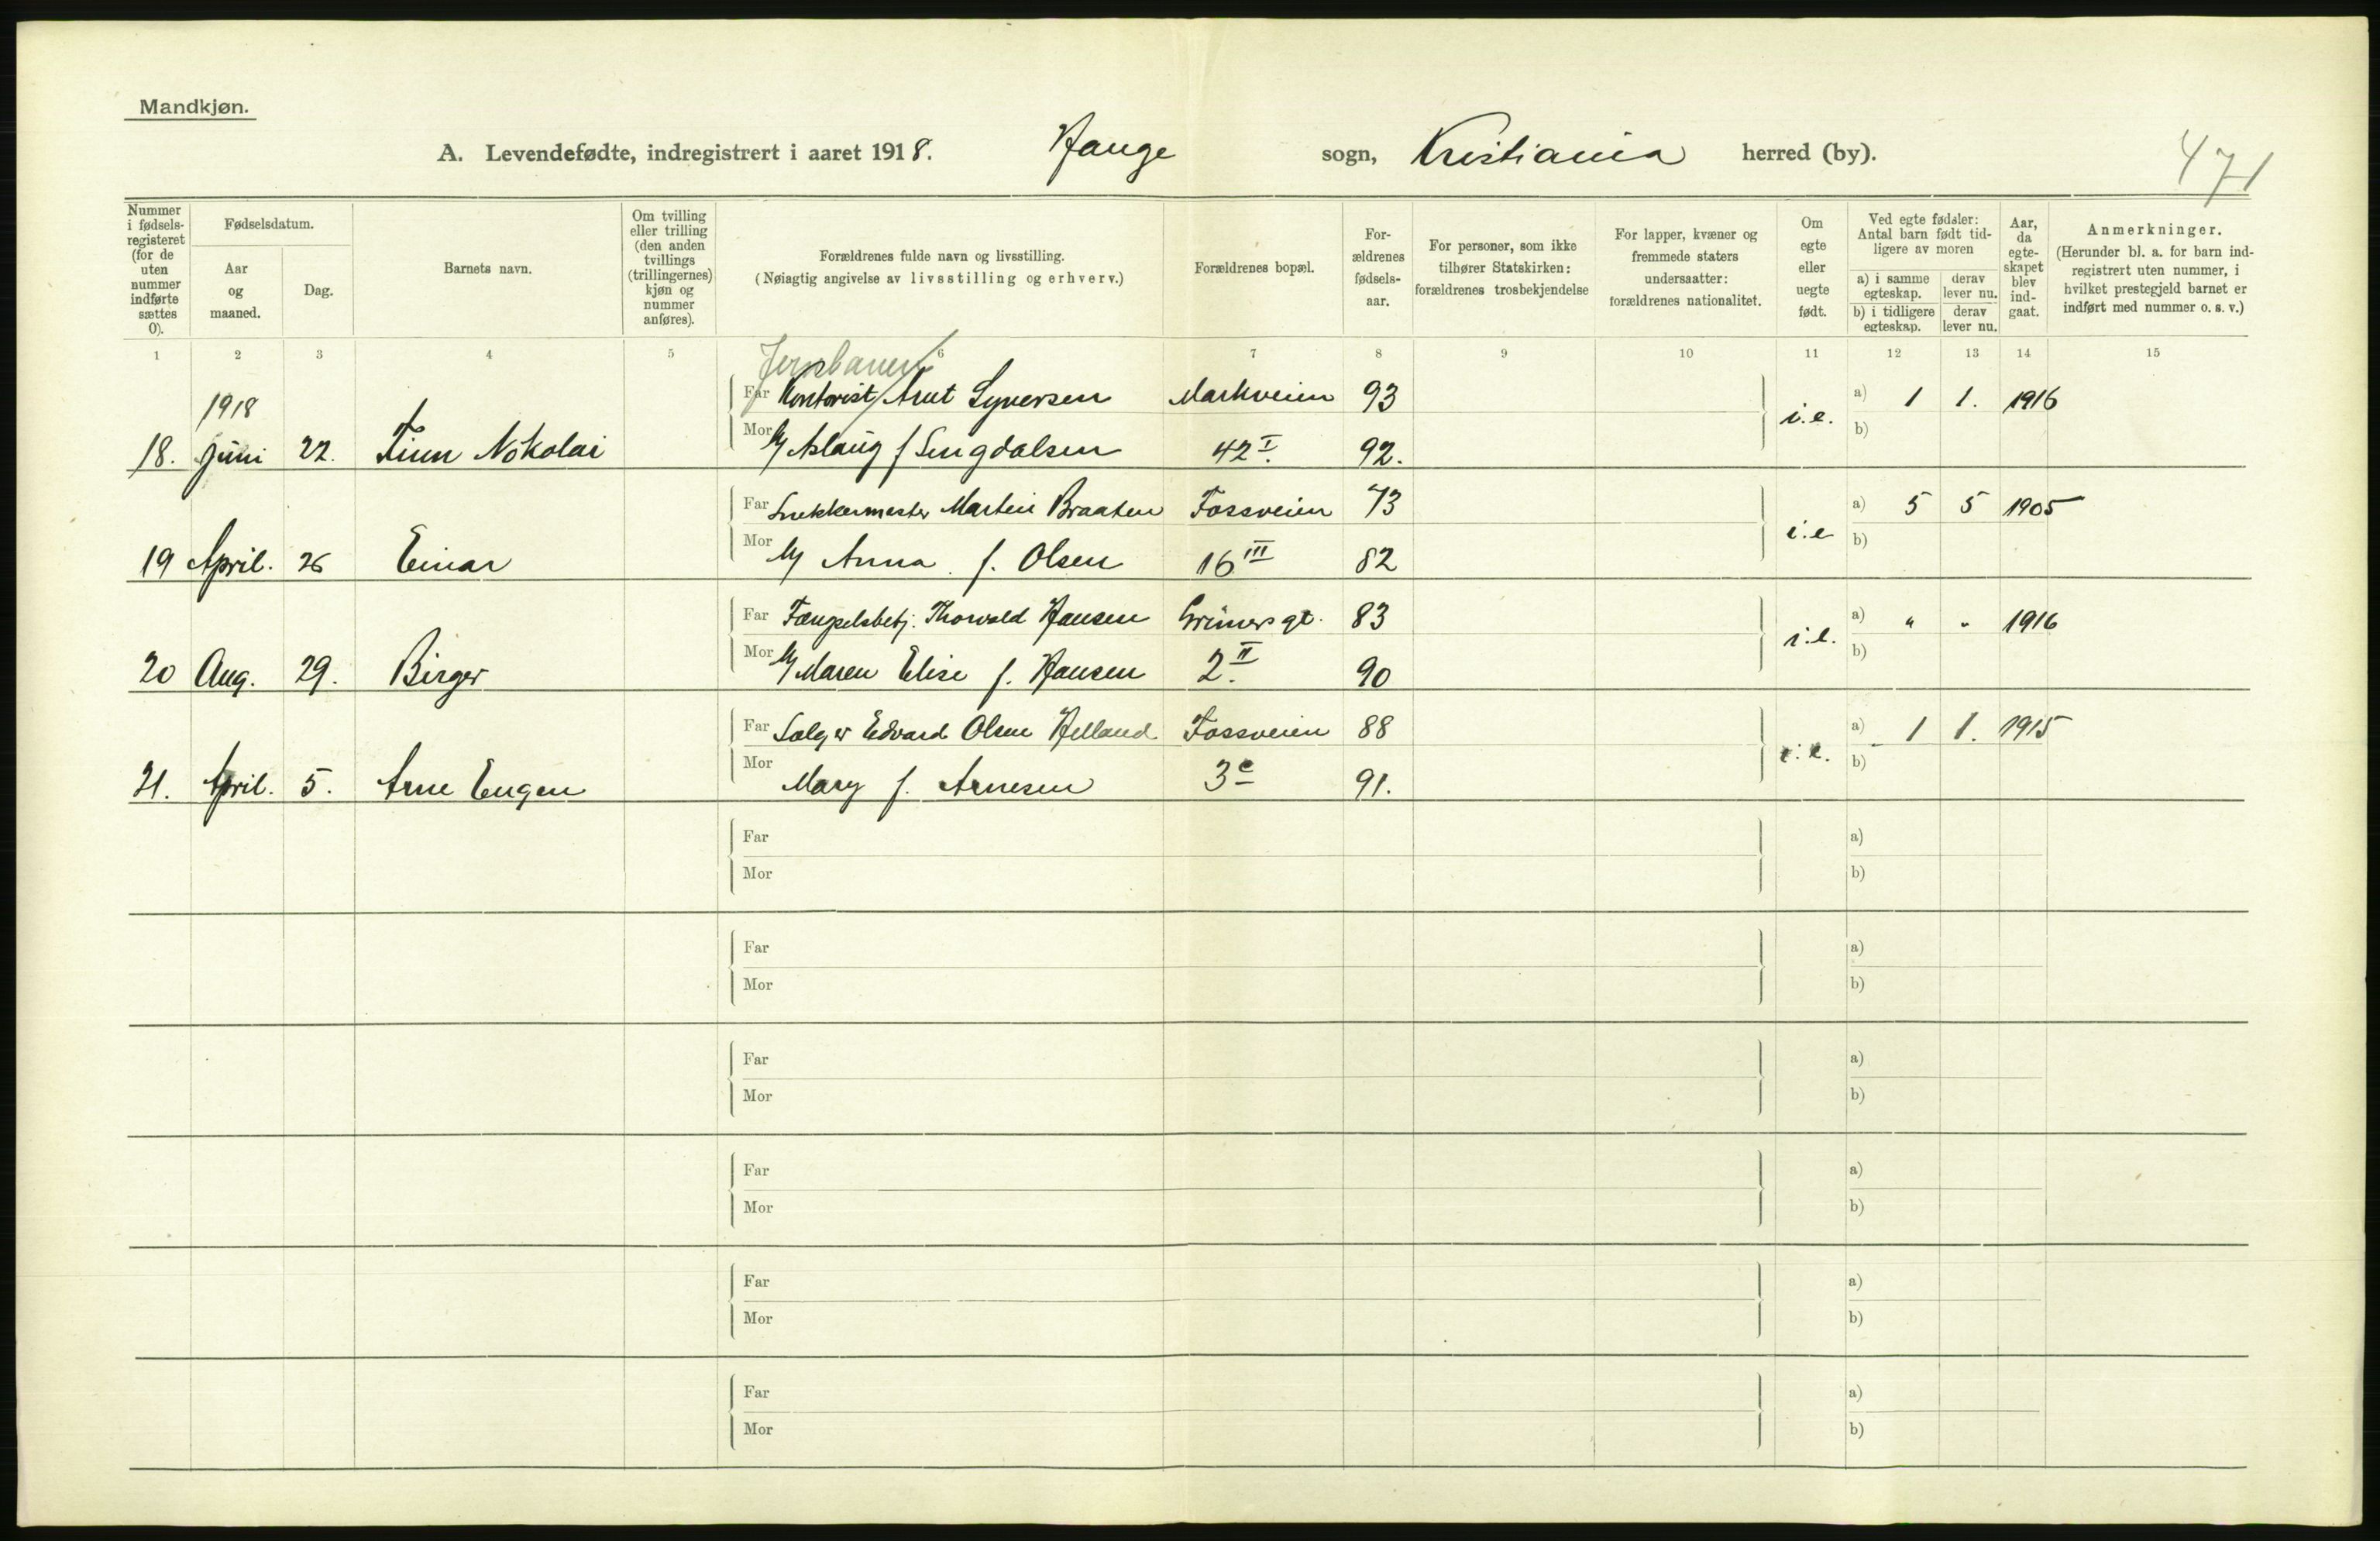 Mandkjøn.
A. Levendefødte, indregistrert i aaret 1918. Hauge sogn, Kristiania herred (by).
471
Nummer i fødsels-registeret (for de uten nummer indførte sættes 0).
Fødselsdatum.
Aar og maaned.
Dag.
Barnets navn.
Om tvilling eller trilling (den anden tvillings (trillingernes) kjøn og nummer anføres).
Forældrenes fulde navn og livsstilling.
(Nøiagtig angivelse av livsstilling og erhverv.)
Forældrenes bopæl.
For-ældrenes fødsels-aar.
For personer, som ikke tilhører Statskirken: forældrenes trosbekjendelse
For lapper, kvæner og fremmede staters undersaatter: forældrenes nationalitet.
Om egte eller uegte født.
Ved egte fødsler: Antal barn født tid-ligere av moren
a) i samme egteskap. derav lever nu.
b) i tidligere egteskap. derav lever nu.
Aar, da egte-skapet blev ind-gaat.
Anmerkninger.
(Herunder bl. a. for barn ind-registrert uten nummer, i hvilket prestegjeld barnet er indført med nummer o. s. v.)
1 2 3 4 5 6 7 8 9 10 11 12 13 14 15
Jernbanen
1918 Far Kontorist Arnt Syversen Markveien 93 a) 1 1. 1916
18. Juni 22. Finn Nikolai Mor Aslaug f. 42 I. 92. i.e. b)
Far Snekkermester Martin Braaten Fossveien 73 a) 5 5 1905
19 April. 26 Einar Mor Anna f. Olsen 16 III 82 i.e b)
Far Fængselsbetj. Thorvald Hansen Grünersgt. 83 a) " " 1916
20 Aug. 29. Birger Mor Maren Elise f. Hansen 2. II 90 i.e. b)
Far Sælger Edvard Olsen Helland Fossveien 88 a) 1 1. 1915
21. April. 5. Arne Eugen Mor Mary f. Arnesen 3 c 91. i.e. b)
Far a)
Mor b)
Far a)
Mor b)
Far a)
Mor b)
Far a)
Mor b)
Far a)
Mor b)
Far a)
Mor b)